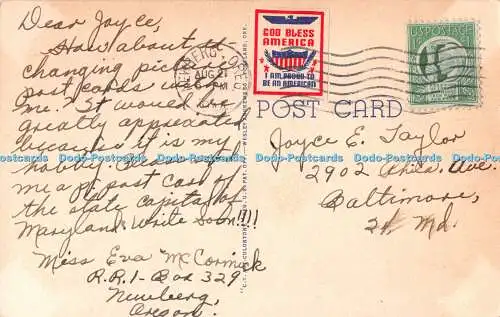 Dear Joyce,
How about
changing picture
post cards with
me? It would be
greatly appreciated
because it is my
hobby. Please
me a p. post card of
the state capital of
Maryland. Write soon!!!!
Miss Eva McCormick
R.R.1-Box 329
Newberg,
Oregon.
NEWBERG
OREG.
AUG 21
PM
GOD BLESS
AMERICA
I AM PROUD TO
BE AN AMERICAN
U.S. POSTAGE
POST CARD
Joyce E. Taylor
2902 Ave.
Baltimore,
Md.
Dodo-Postcards Dodo-Postcards Dodo-Postcards Dodo-Postcards Dodo-Postcards